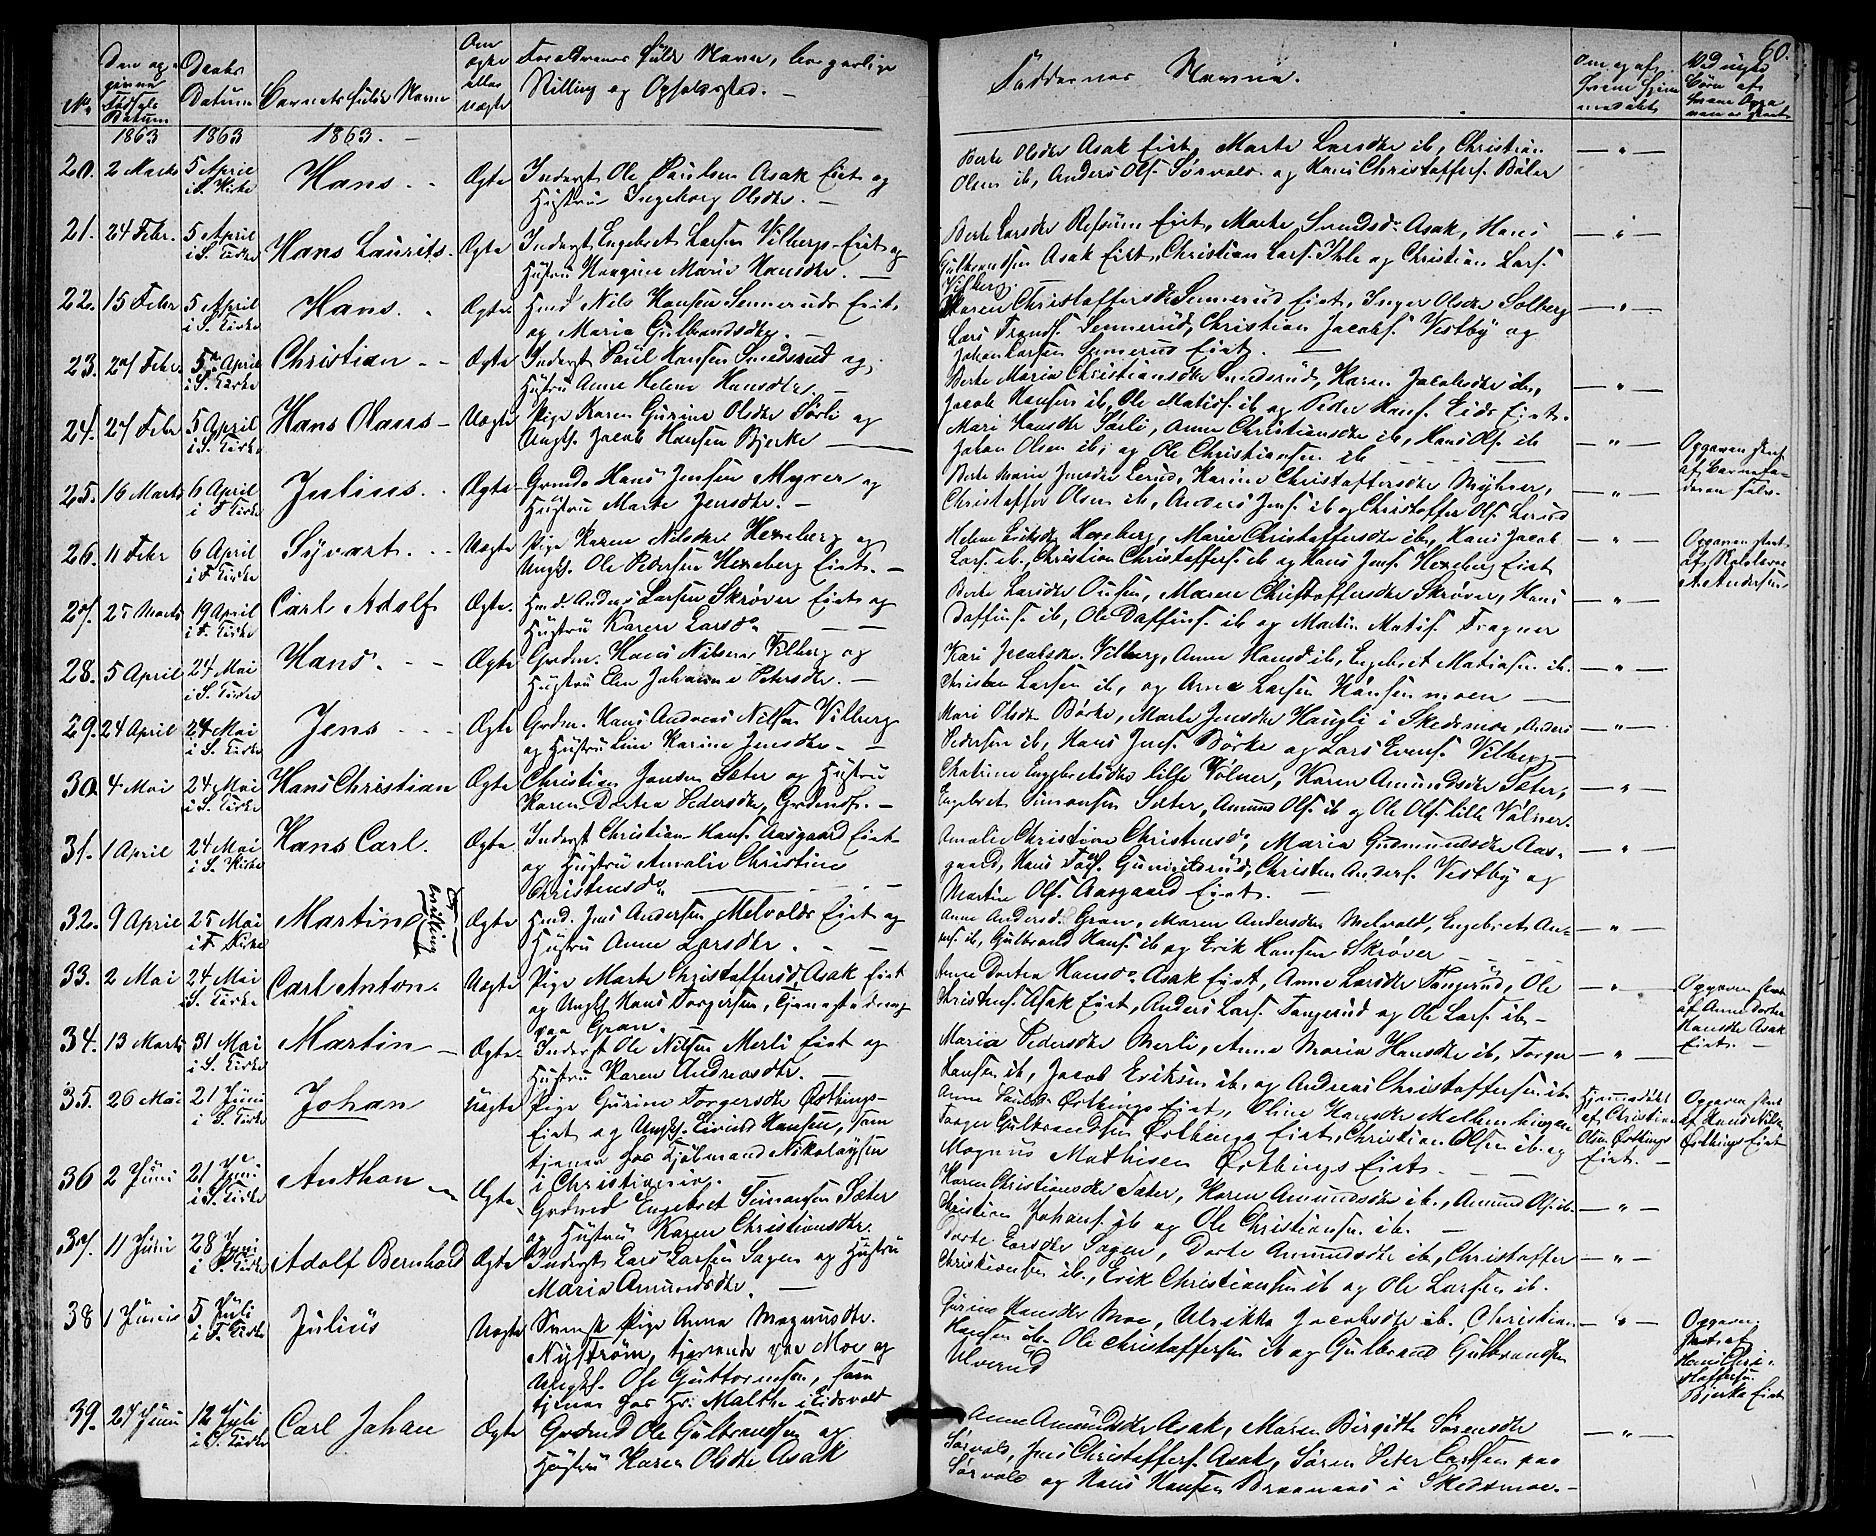 60.
No. Den op- givne Fødsels Datum
Daabs Datum
Barnets fulde Navn
Om ægte eller uægte
Forældrenes fulde Navne, borgerlige Stilling og Opholdssted. —
Faddernes Navne.
Om og af hvem hjemmedøbt
Ved uægte Børn af hvem Opga-
1863 1863 1863. —
20. 2 Marts 5 April i S. Kirke Hans. Ægte Inderst Ole Paulsen Asak Eiet og
Hustru Ingeborg Olsdtr. —
Berte Olsdtr Asak Eiet, Marte Larsdtr ib, Christian
Olsen ib, Anders Ols. Sørvald og Hans Christoffers. Böler — " —
21. 24 Febr. 5 April i S. Kirke Hans Laurits. Ægte Inderst Engebret Larsen Vilbergs-Eiet og
Hustru Haagine Marie Hansdtr. —
Berte Larsdtr Refsum Eiet, Marte Asak, Hans
Gulbrandsen Asak Eiet, Christian Lars. Ihle og Christian Lars.
Vilberg. — " —
22. 15 Febr 5 April i S. Kirke Hans. Ægte Hmd Nils Hansen Sennerud Eiet
og Maria Gulbrandsdtr. —
Karen Christoffersdtr Sennerud Eiet, Inger Olsdtr Solberg
Lars Sennerud, Christian Jacobs. Vestby og
Johan Larsen Sennerud Eiet. — " —
23. 27 Febr. 5 April i S. Kirke Christian Ægte Inderst Paul Hansen Smedsrud og
Hustru Anne Helene Hansdtr. —
Berte Maria Christiansdtr Smedsrud, Karen Jacobsdtr ib,
Jacob Hansen ib, Ole Matis. ib og Peder Hans. Eids Eiet. — " —
24. 27 Febr 5 April i S. Kirke Hans Olaus Uægte Pige Karen Gurine Olsdtr Sörli og
Ungk. Jacob Hansen Bjerke
Mari Hansdtr Sörli, Anne Christiansdtr ib, Hans Ols. ib
Johan Olsen ib, og Ole Christiansen ib — " —
Opgaven
af Barnefa-
deren selv.
25. 16 Marts 6 April i F. Kirke Julius. Ægte Grmd. Hans Jensen Myrer og
Hustru Marte Jensdtr. —
Berte Marie Jensdtr Lerud, Karine Christoffersdtr Myhrer,
Christoffer Olsen ib, Anders Jens. ib og Christoffer Ols. Lerud — " —
26. 11 Febr 6 April i F. Kirke Syvart. Uægte Pige Karen Nilsdtr Hexeberg og
Ungk. Ole Pedersen Hexeberg Eiet. —
Helene Eriksdtr Hexeberg, Marie Christoffersdtr ib, Hans Jacob
Lars. ib, Christian Christoffers. ib og Hans Jens. Hexeberg Eiet — " —
Opgaven
af
A. Andersen
27. 25 Marts 19 April i F. Kirke Carl Adolf Ægte. Hmd. Anders Larsen Skrøver Eiet og
Hustru Karen Larsdr
Berte Larsdtr Ousen, Maren Christoffersdtr Skrøver, Hans
Daffins. ib, Ole Daffins. ib og Martin Matis. Fragner — " —
28. 5 April 24 Mai i S. Kirke Hans. Ægte Grdm. Hans Nilsen Vilberg og
Hustru Elen Johanne Petersdtr. —
Kari Jacobsdtr. Vilberg, Anne Hansd. ib, Engebret Matiasen ib.
Christian Larsen ib, og Arne Larsen Hansenmoen — " —
29. 24 April 24 Mai i S. Kirke Jens Ægte Grdm. Hans Andreas Nilsen Vilberg
og Hustru Karine Jensdtr —
Mari Olsdtr Börke, Marte Jensdtr Haugli i Skedsmoe, Anders
Pedersen ib, Hans Jens. Börke og Lars Evens. Vilberg — " —
30. 4 Mai 24 Mai i S. Kirke Hans Christian Ægte Christian Jansen Sæter og Hustru
Karen Dortea Pedersdtr, —
Chatrine Engebretsdtr lille Völner, Karen Amundsdtr Sæter,
Engebret Simonsen Sæter, Amund Ols. ib og Ole Ols. lille Völner. — " —
31. 1 April 24 Mai i S. Kirke Hans Carl. Ægte Inderst Christian Hans. Aasgaard Eiet
og Hustru Amalie Christine
Christensdr
Amalie Christine Christensdr, Maria Gudmundsdtr Aas-
gaard, Hans Gunnildsrud, Christen Anders. Vestby og
Martin Ols. Aasgaard Eiet. — " —
32. 9 April 25 Mai i F. Kirke Martin Tvilling Ægte Hmd. Jens Andersen Melvolds Eiet og
Hustru Anne Larsdtr.
Anne Andersd. Gran, Maren Andersdtr Melvold, Engebret An-
ders. ib, Gulbrand Hans. ib og Erik Hansen Skrøver — " —
33. 2 Mai 24 Mai i S. Kirke Carl Anton. Uægte Pige Marte Christoffersd. Asak Eiet
og Ungk. Hans Torgersen, Tjenestedreng
paa Gran.
Anne Dortea Hansdr Asak Eiet, Anne Larsdtr Tangerud, Ole
Christens. Asak Eiet, Anders Lars. Tangerud og Ole Lars. ib — " —
Opgaven
af Anne Dortea
Hansdtr Asak
Eiet. —
34. 13 Marts 31 Mai i S. Kirke Martin Ægte Inderst Ole Nilsen Merli Eiet og
Hustru Karen Andreasdtr. —
Maria Pedersdtr Merli, Anne Maria Hansdtr ib, Torger
Hansen ib, Jacob Eriksen ib, og Andreas Christoffersen ib — " —
35. 26 Mai 21 Juni i S. Kirke Johan Uægte Pige Gurine Torgersdtr Ørtings-
Eiet og Ungk. Eivind Hansen, som
tjener hos Kjøbmand Nikolaysen
i Christiania.
Anne Ørtings Eiet, Oline Hansdtr Mellemhingen
Torger Gulbrandsen Ørtings Eiet, Christian Olsen ib. og
Magnus Mathisen Ørtings Eiet
Hjemmedøbt
af Christian
Olsen Ørtings
Eiet. —
Opgaven
af Hans Nils.
Ørtings Eiet
36 2 Juni 21 Juni i S. Kirke Anthon Ægte Grdmd Engebret Simonsen Sæter
og Hustru Karen Christiansdtr.
Karen Christiansdtr Sæter, Karen Amundsdtr ib, Amund Ols. ib.
Christian Johans. ib og Ole Christiansen ib. — " —
37. 11 Juni 28 Juni Adolf Bernhard Ægte Inderst Lars Larsen Sagen og Hustru
Maria Amundsdtr. —
Dorte Larsdtr Sagen, Dorte Amundsdtr ib, Christoffer
Christiansen ib, Erik Christiansen ib og Ole Larsen ib. — " —
38 1 Juni 5 Juli i F. Kirke Julius Uægte Svensk Pige Anna Magnusdtr.
Nyström, tjenende paa Moe og
Ungk. Ole Guttormsen, som
tjener hos Hr. Malthe i Eidsvold
Gurine Hansdtr Moe, Ulrikka Jacobsdtr ib. Christian
Hansen ib. Ole Christoffersen ib og Gulbrand Gulbrandsen
Ulverud — " —
Opgaven
af
Hans Chri-
stoffersen
Bjerke Eiet
39. 24 Juni 12 Juli i S. Kirke Carl Johan Ægte Grdmd Ole Gulbrandsen og
Hustru Karen Olsdtr Asak
Anne Amundsdtr Asak, Maren Birgitte Sörensdtr
Sørvald, Jens Christoffers. Asak, Sören Peter Larssen paa
Sørvald og Hans Hansen Braanaas i Skedsmoe. — " —